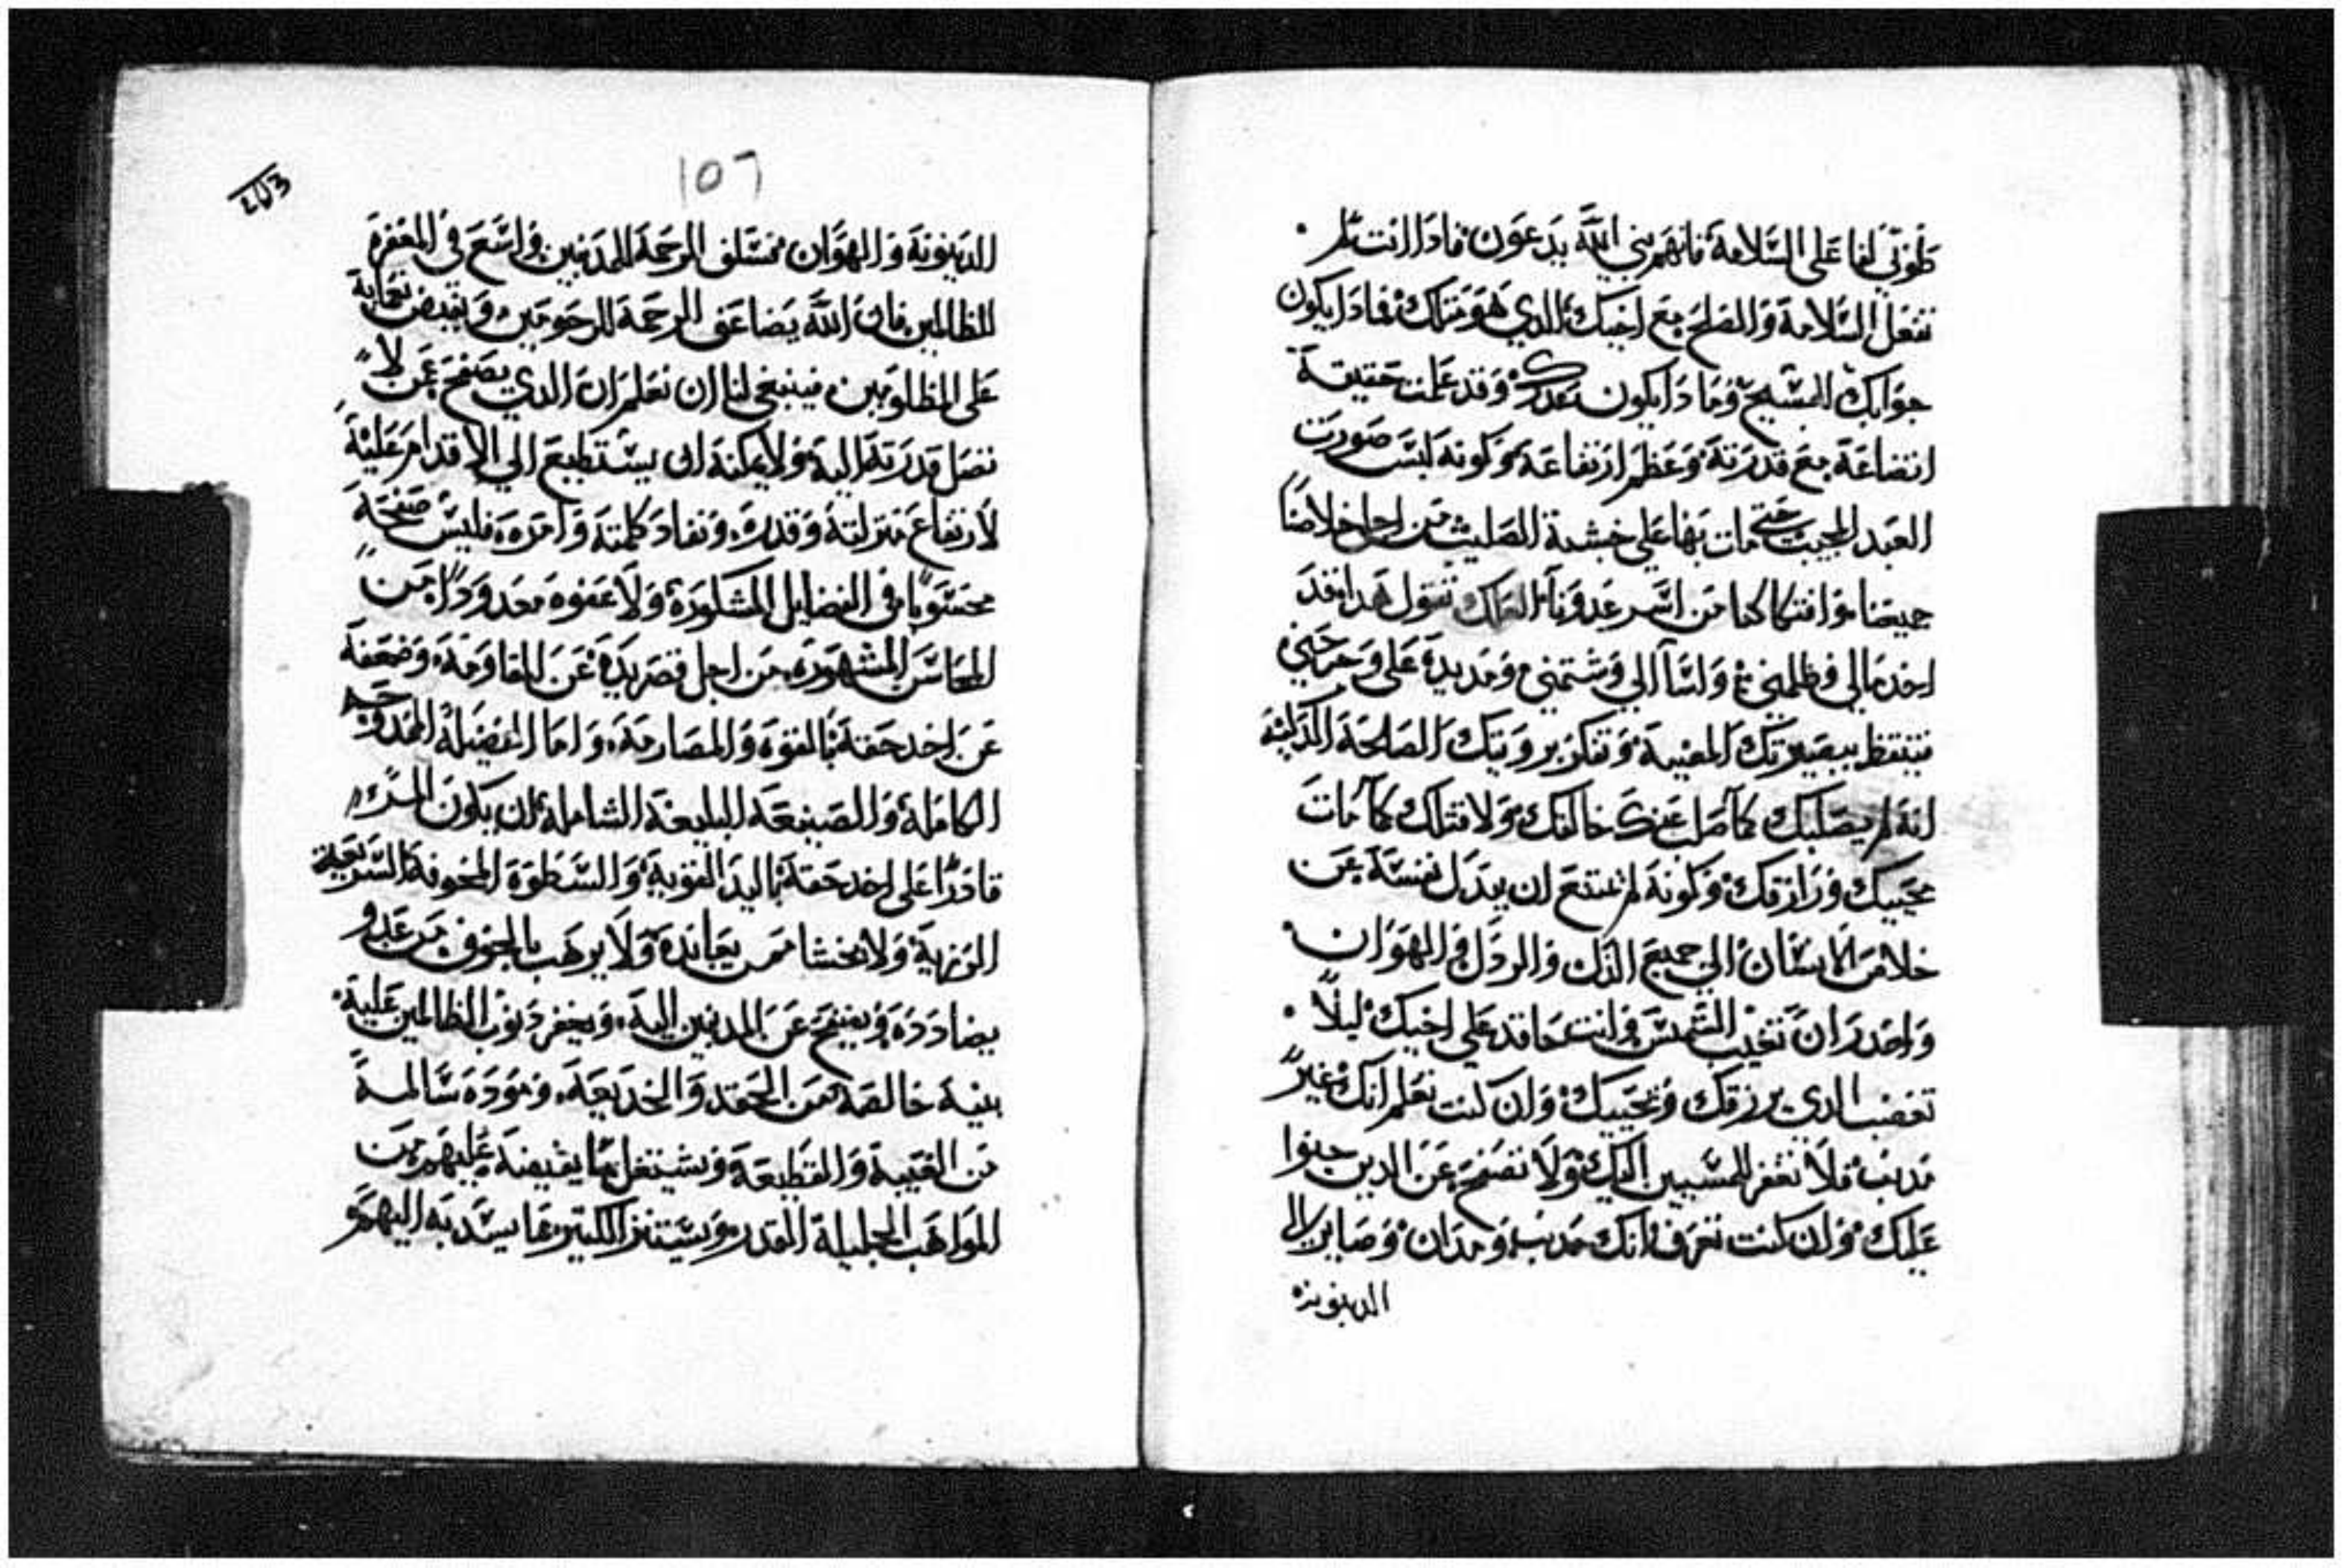 طوبي لفاعلي السلامة فانهم بني الله يدعون فاداانت لم
تفعل السلامة والصلح مع اخيك الدي هو متلك فمادا يكون
جوابك للمسيح ومادا يكون عدرك وقد علمت حقيقة
اتضاعة مع قدرتة وعظم ارتفاعة وكونة لبس صورت
العبد الحبيب حتي مات بها علي خشبة الصليب من اجل خلاصنا
جميعنا وافتكاكنا من اسر عدونا لعلك تقول هدا فقد
اخد مالي وظلمني واسا الي وشتمني ومد يدة علي وجرحني
فتيقظ ببصيرتك المغيبة وتفكر برويتك الصالحة الدكية
انة لم يصلبك كما صلب عنك خالقك ولا قتلك كما مات
محييك ورازقك وكونة لم يمتنع ان يبدل نفسة عن
خلاص الانسان الي جميع الدل والردل والهوان
واحدر ان تغيب الشمس وانت حاقد علي اخيك ليلا
تغضب الدي يرزقك ويحييك وان كنت تعلم انك غير
مدنب فلا تغفر للمسيين اليك ولا تصفح عن الدين جنوا
عليك وان كنت تعرف انك مدنب ومدان وصاير الي
الدينونة
١٥٦
الدينونة والهوان فتسلف الرحمة للمدنبين واسع في المغفرة
للظالمين فان الله يضاعف الرحمة للرحومين ويفيض نعمايه
علي المظلومين فينبغي لنا ان نعلم ان الدي يصفح عن لا
تصل قدرتة الية ولا يمكنة ان يستطيع الي الاقدام علية
لارتفاع منزلتة وقدرة ونفاد كلمتة وامرة فليس صفحة
محسوبا في الفضايل المشكورة ولا عفوة معدودا من
المحاسن المشهورة من اجل قصر يدة عن المقاومة وضعفة
عن اخد حقة بالقوة والمصارمة واما الفضيلة الممدوحة
الكاملة والصنيعة البليغة الشاملة ان يكون المرء
قادرا علي اخد حقة باليد القوية والسطوة المخوفة السريعة
المرهبة ولا يخشا ممن يعاندة ولا يرهب بالخوف من عدو
يضاددة ويصفح عن المدنبين الية ويغفر دنوب الظالمين علية
بنية خالصة من الحقد والخديعة ومودة سالمة
من الغيبة والقطيعة ويستقل ما يفيضة عليهم من
المواهب الجليلة القدر ويستنزر الكتير مما يسديه اليهم و